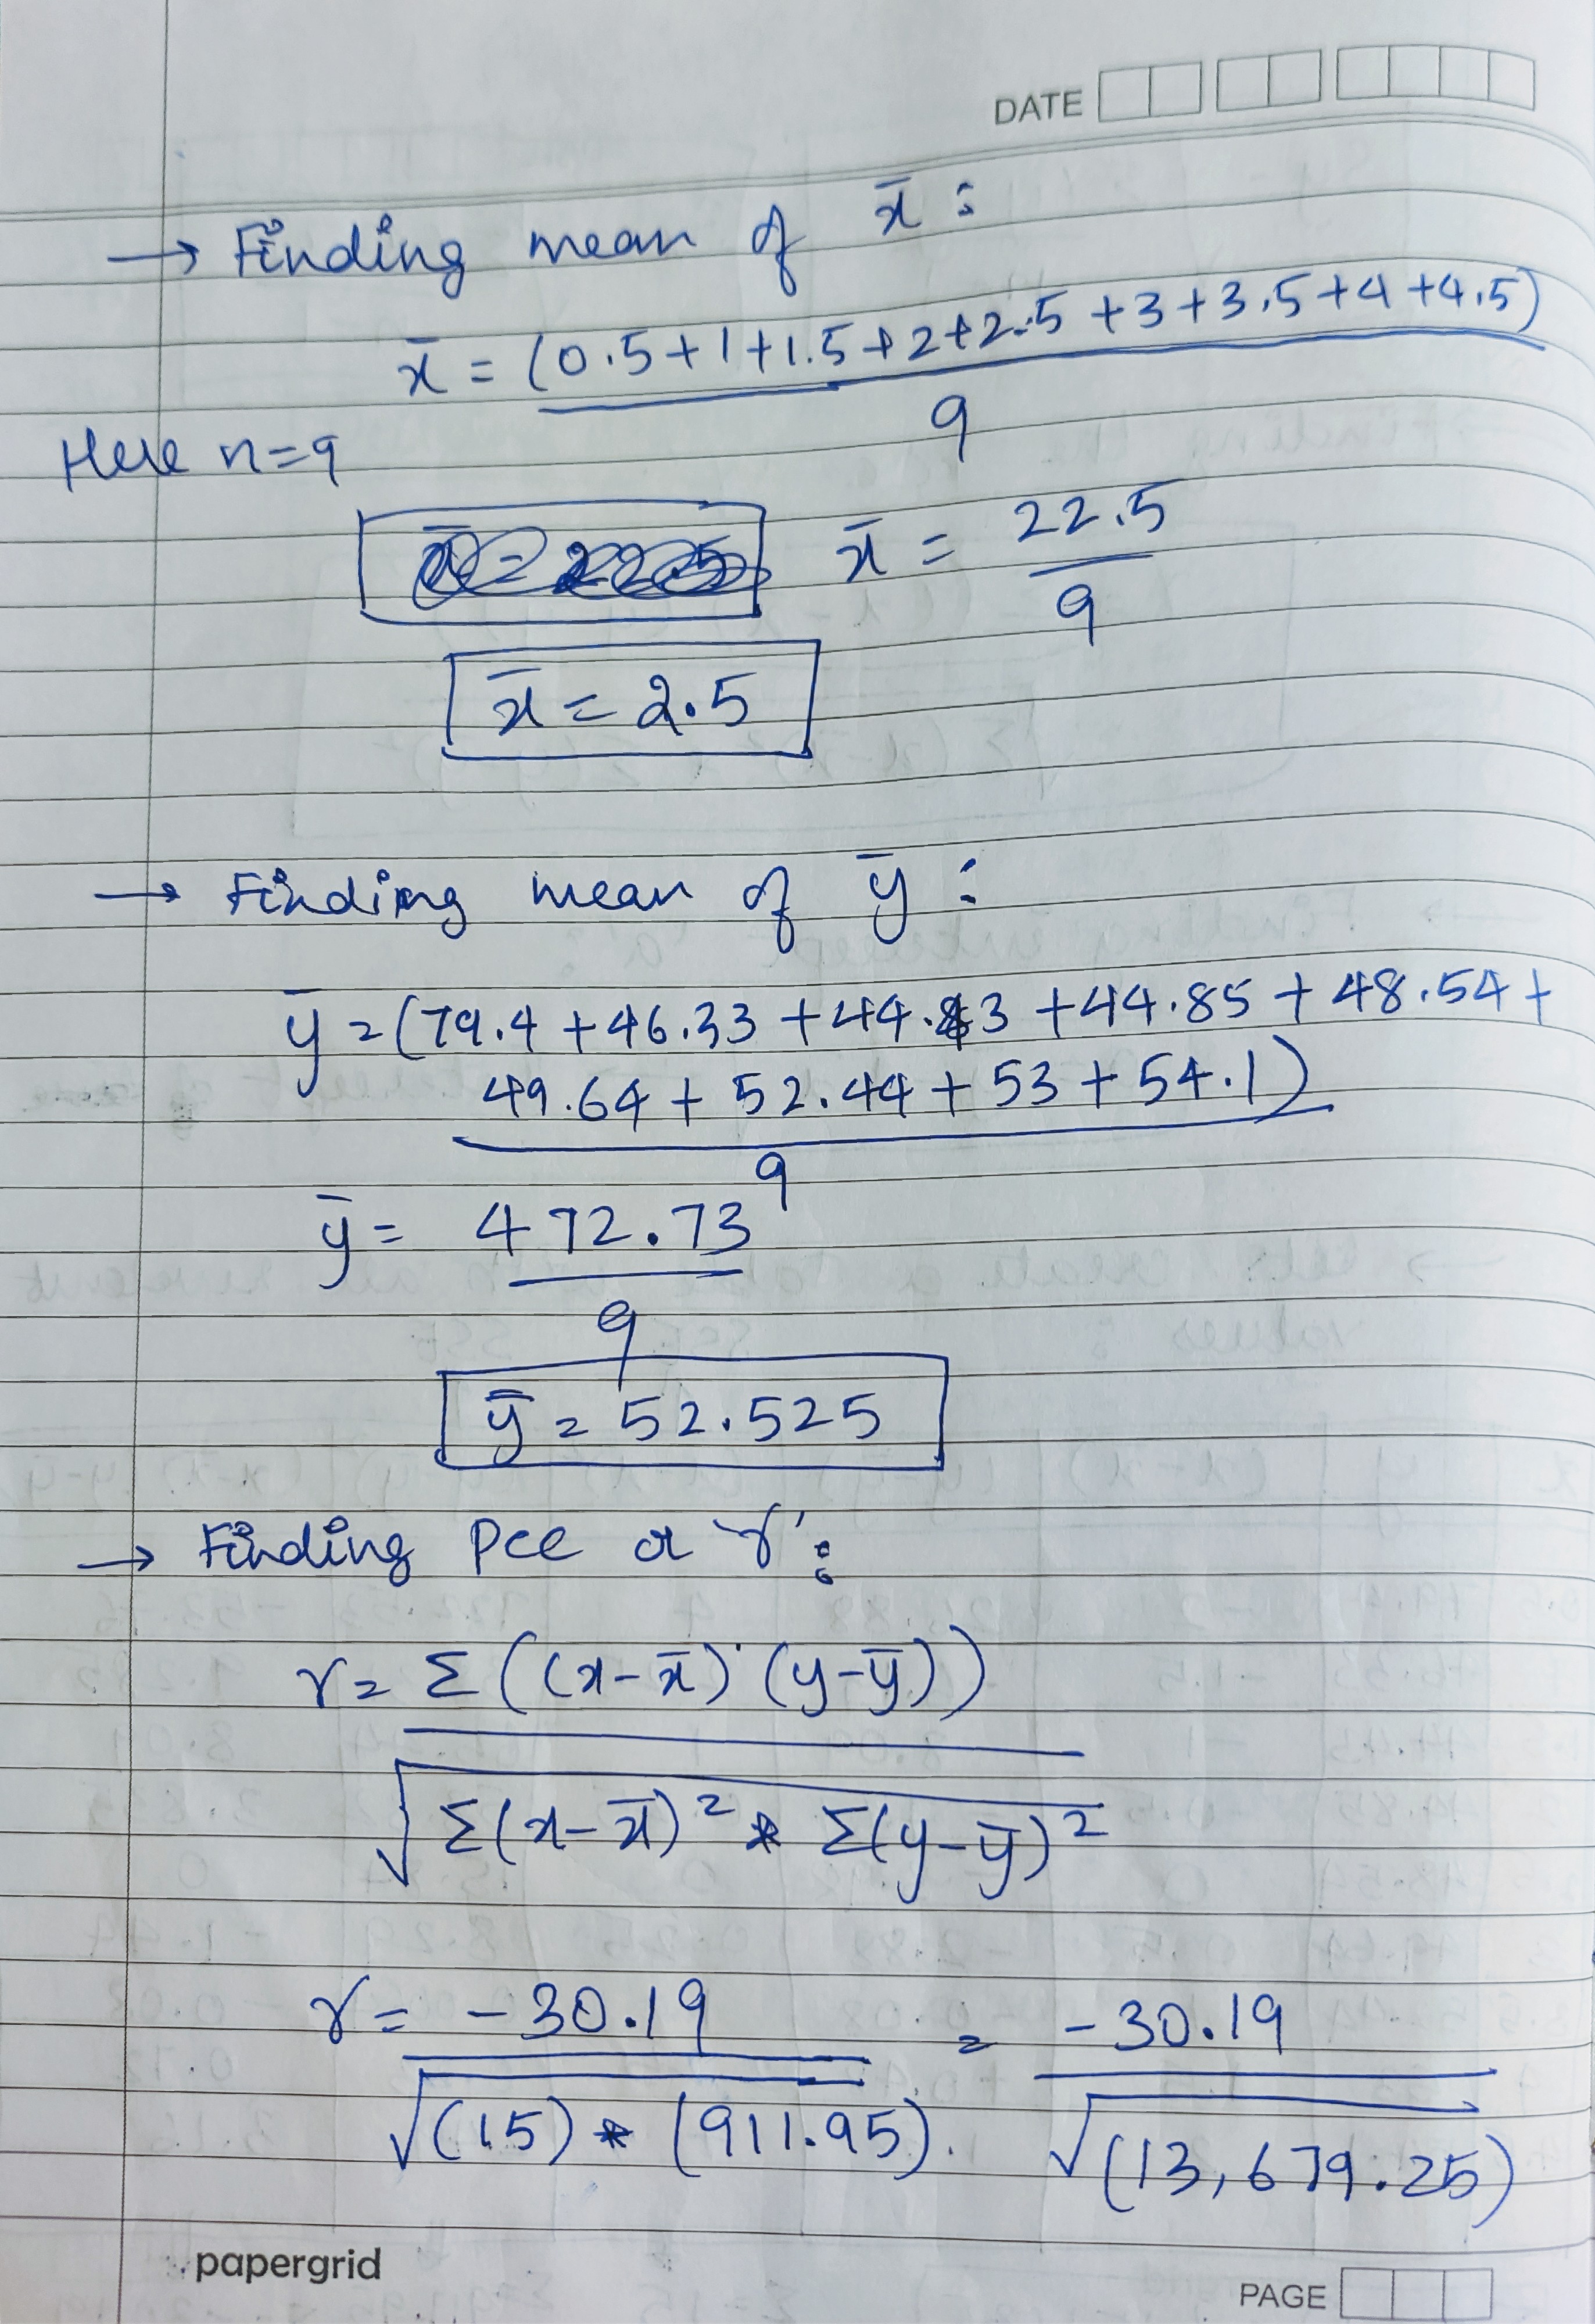 DATE
→ Finding mean of x̄ :
x̄ = (0.5+1+1.5+2+2.5+3+3.5+4+4.5)
9
Here n=9
x̄ = 22.5
9
x̄ = 2.5
→ Finding mean of ȳ :
ȳ = (79.4 + 46.33 + 44.43 + 44.85 + 48.54 +
49.64 + 52.44 + 53 + 54.1)
9
ȳ = 472.73
9
ȳ = 52.525
→ Finding PCC or 'r' :
r = Σ((x-x̄)·(y-ȳ))
√Σ(x-x̄)² * Σ(y-ȳ)²
r = -30.19 = -30.19
√(15) * (911.95). √(13,679.25)
papergrid
PAGE